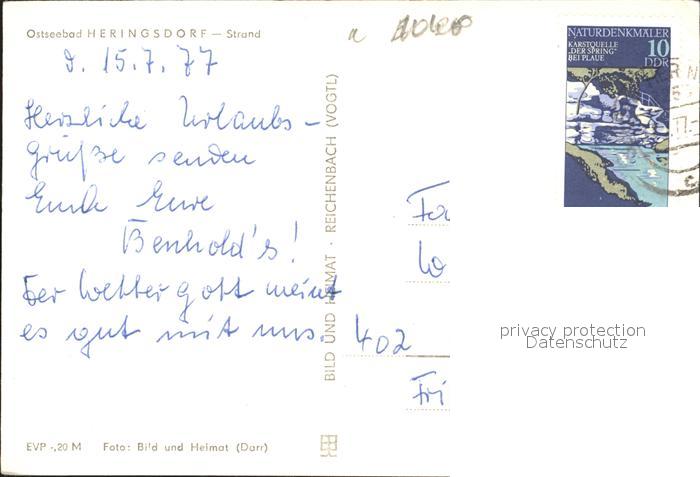 Ostseebad HERINGSDORF — Strand
d. 15.7.77
Herzliche Urlaubs-
grüße senden
Euch Eure
Benhold's!
Der Wettergott meint
es gut mit uns.
EVP -,20 M Foto: Bild und Heimat (Darr)
BILD UND HEIMAT · REICHENBACH (VOGTL)
NATURDENKMÄLER
KARSTQUELLE
„DER SPRING"
BEI PLAUE
10
DDR
402
Fri
privacy protection
Datenschutz